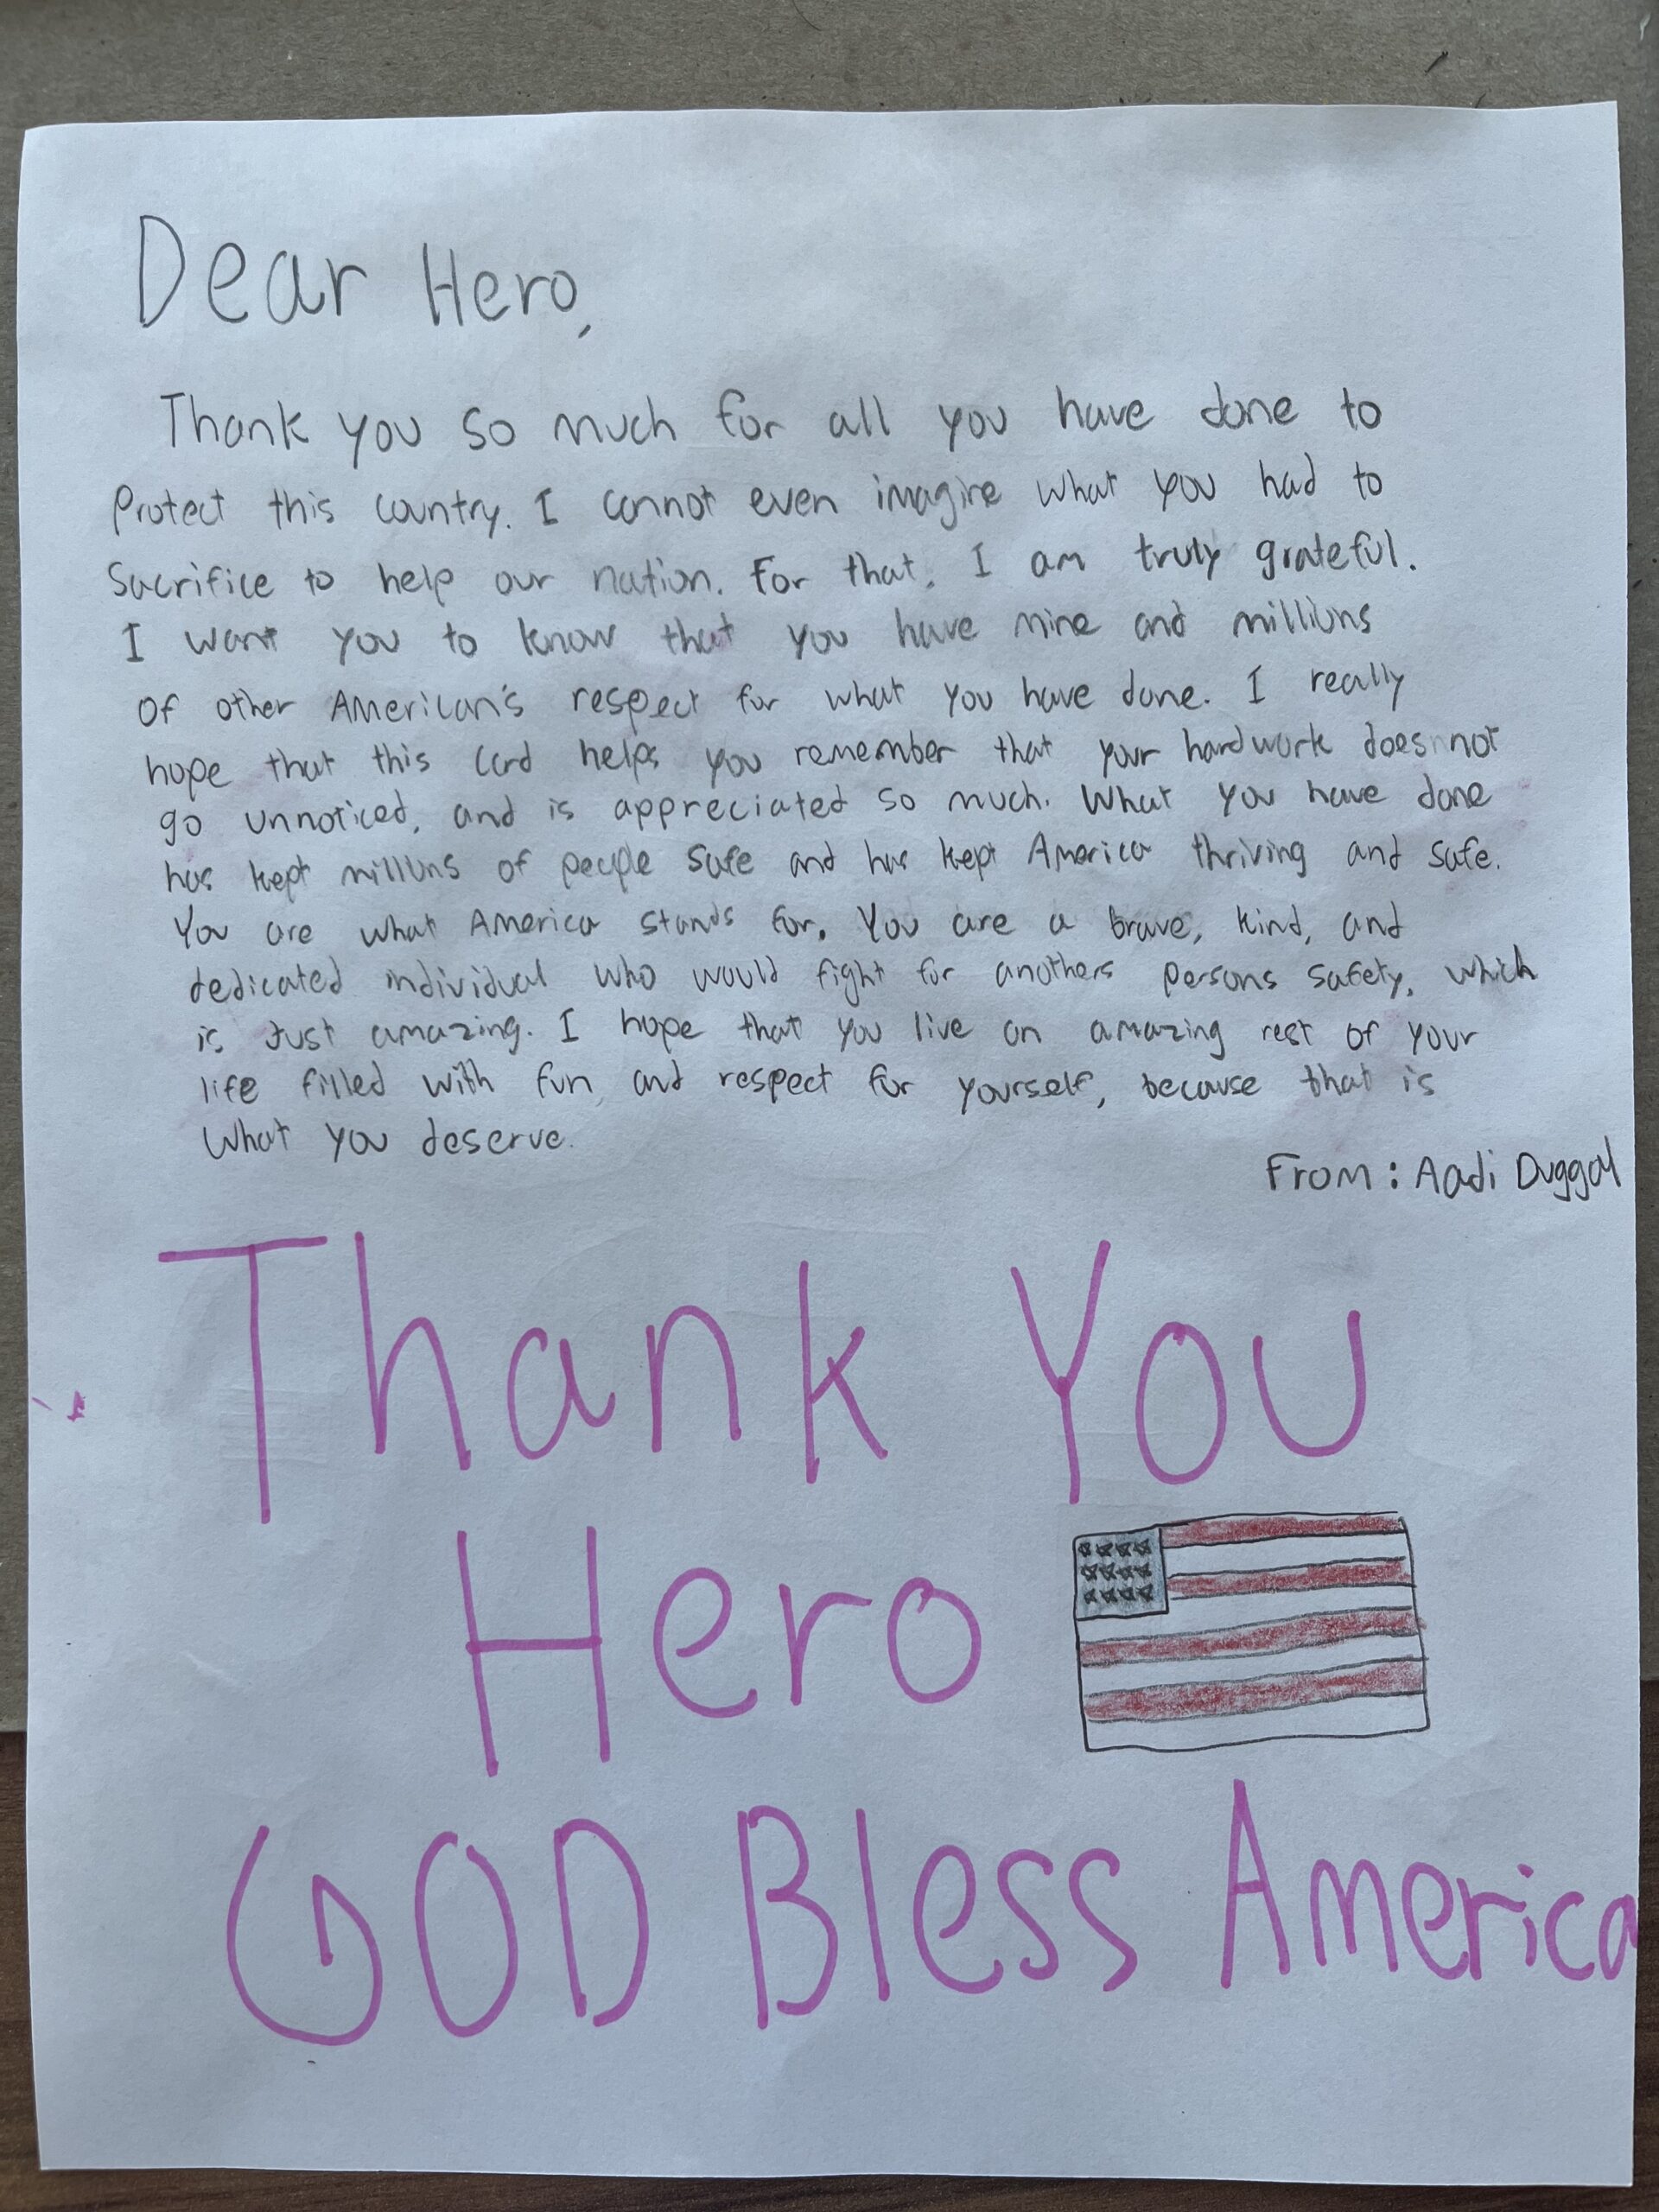 Dear Hero,
Thank you so much for all you have done to
Protect this country. I cannot even imagine what you had to
Sacrifice to help our nation. For that, I am truly grateful.
I want you to know that you have mine and millions
of other American's respect for what you have done. I really
hope that this card helps you remember that your hardwork does not
go unnoticed, and is appreciated so much. What you have done
has kept millions of people safe and has kept America thriving and safe.
You are what America stands for. You are a brave, kind, and
dedicated individual who would fight for anothers persons safety, which
is Just amazing. I hope that you live an amazing rest of your
life filled with fun, and respect for yourself, because that is
what you deserve.
From: Aadi Duggal
Thank You
Hero
GOD Bless America